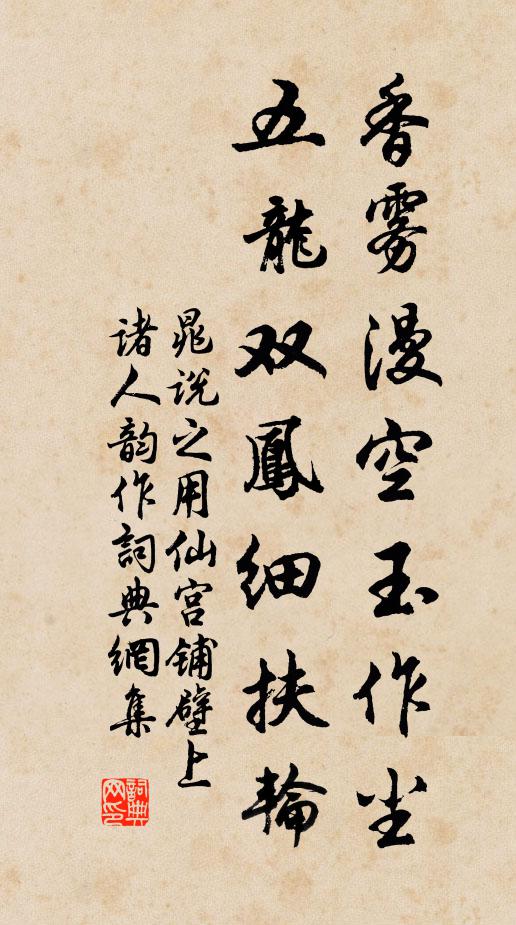 香雾漫空玉作尘
五龍双鳳细扶輪
晁说之用仙宫铺壁上
诸人韵作詞典網集
詞典
网印